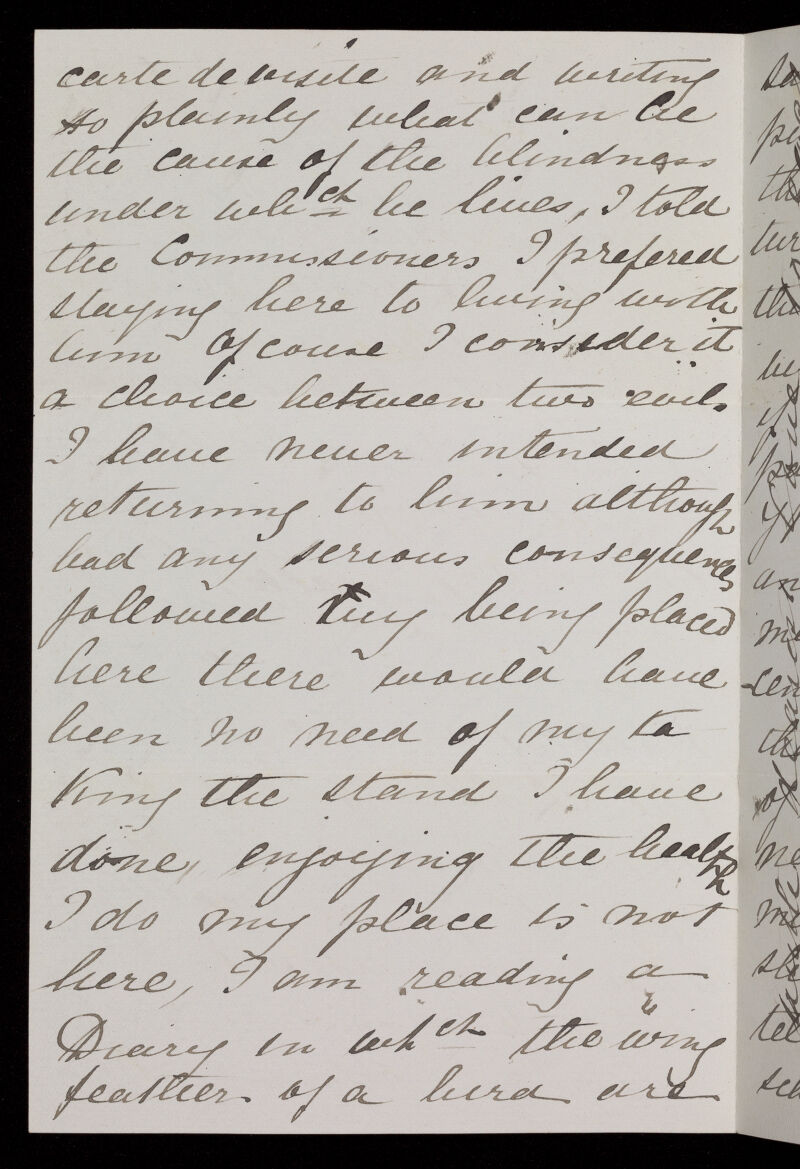 carte de visite and writing
so plainly what can be
the cause of the blindness
under whch he lives, I told
the Commissioners I prefered
staying here to living with
him Of couse I consider it
a choice between two evils
I have never intended
returning to him although
had any serious consequences
followed my being placed
here there would have
been no need of my ta
king the stand I have
done, enjoying the health
I do my place is not
here, I am reading a
Diary in whch the wing
feathers of a bird are